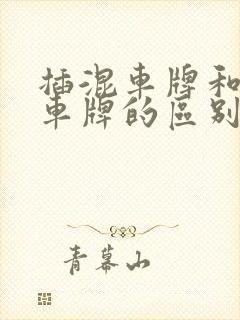 插混車牌和
車牌的區別
青幕山